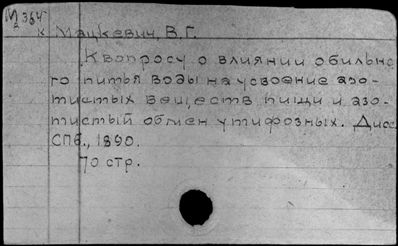 М 364
к Мацкевич, В. Г.
К вопросу о влиянии обильно
го питья воды на усвоение азо-
тистых веществ пищи и азо-
тистый обмен у тифозных. Дисс.
СПб., 1890.
70 стр.